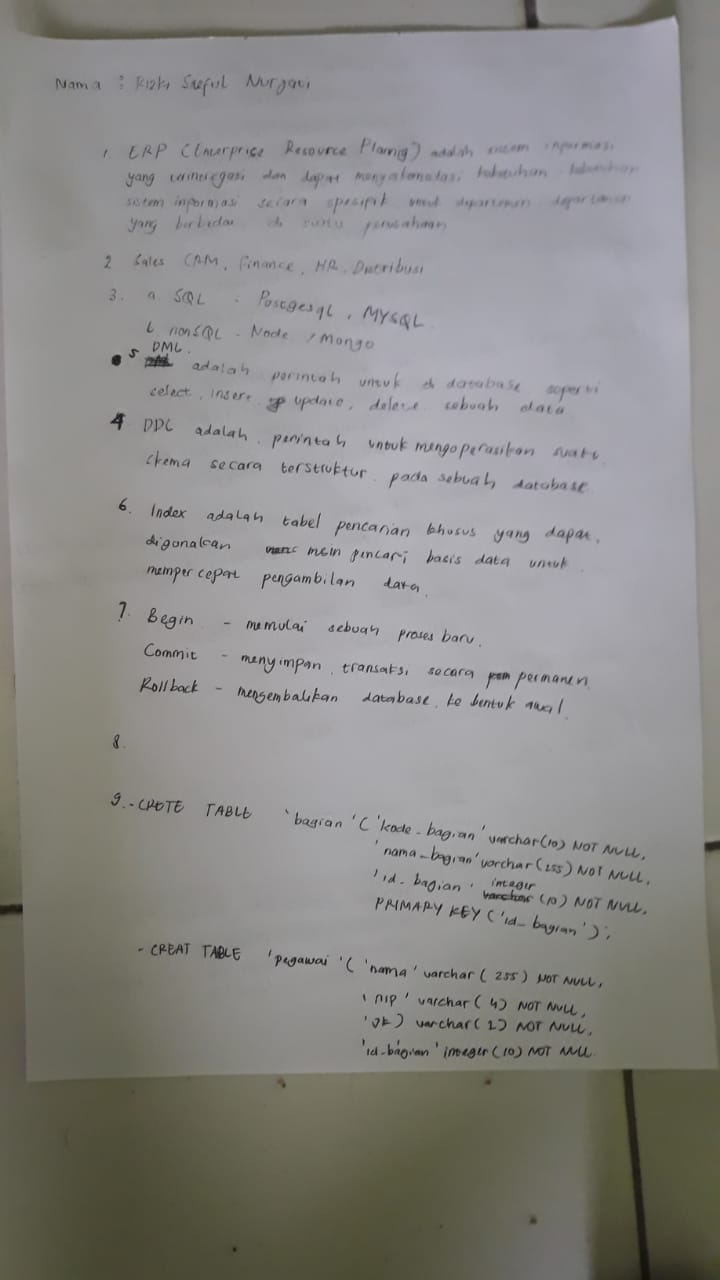 Nama : Rizky Saeful Nurgani
1. ERP (Enterprise Resource Planig) adalah sistem informasi
yang terintegasi dan dapat kebutuhan - kebutuhan
sistem informasi secara spesifik untuk departemen departemen
yang berbeda di suatu perusahaan
2 Sales CRM, Finance, HR, Distribusi
3. a SQL - Postgesql, MYSQL
b nonSQL - Node / Mongo
5 DML
adalah perintah untuk di database seperti
select, insert, update, delete sebuah data
4 DDL adalah perintah untuk mengoperasikan suatu
skema secara terstruktur pada sebuah database
6. Index adalah tabel pencarian khusus yang dapat
digunakan mesin pencari basis data untuk
mempercepat pengambilan data
7. Begin - memulai sebuah proses baru.
Commit - menyimpan transaksi secara permanen
Rollback - mengembalikan database ke bentuk awal
8.
9. - CRETE TABLE 'bagian' ( 'kode_bagian' varchar(10) NOT NULL,
'nama_bagian' varchar (255) NOT NULL,
'id_bagian' integer (10) NOT NULL,
PRIMARY KEY ('id_bagian');
- CREAT TABLE 'pegawai' ( 'nama' varchar (255) NOT NULL,
'nip' varchar (4) NOT NULL,
'jk) varchar( 2) NOT NULL,
'id_bagian' integer (10) NOT NULL